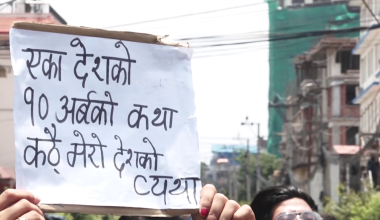 एका देशको
१० अर्बको कथा
कठै मेरो देशको
व्यथा